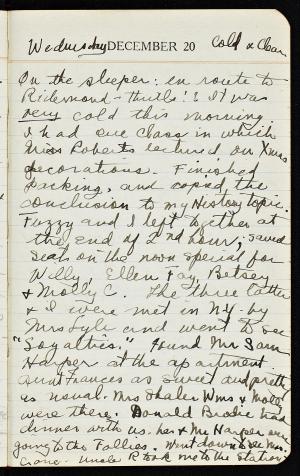 Wednesday DECEMBER 20 Cold & Clear
On the sleeper: en route to
Richmond - thrills!! It was
very cold this morning.
I had one class in which
Miss Roberts lectured on Xmas
decorations. Finished
packing, and copied the
conclusion to my History topic.
Fuzzy and I left together at
the end of 2nd hour, saved
seats on the noon special for
Willy, Ellen Fay, Betsey
& Molly C. The three latter
& I were met in N.Y. by
Mrs Lyle and went to see
"Loyalties." Found Mr Sam
Harper at the apartment
Aunt Frances as sweet and pretty
as usual. Mrs Thaler Wms &
were there. Donald Brodie had
dinner with us, he & Mr Harper were
going to the Follies. Went down & see Mrs
Crane. Uncle R took me to the station